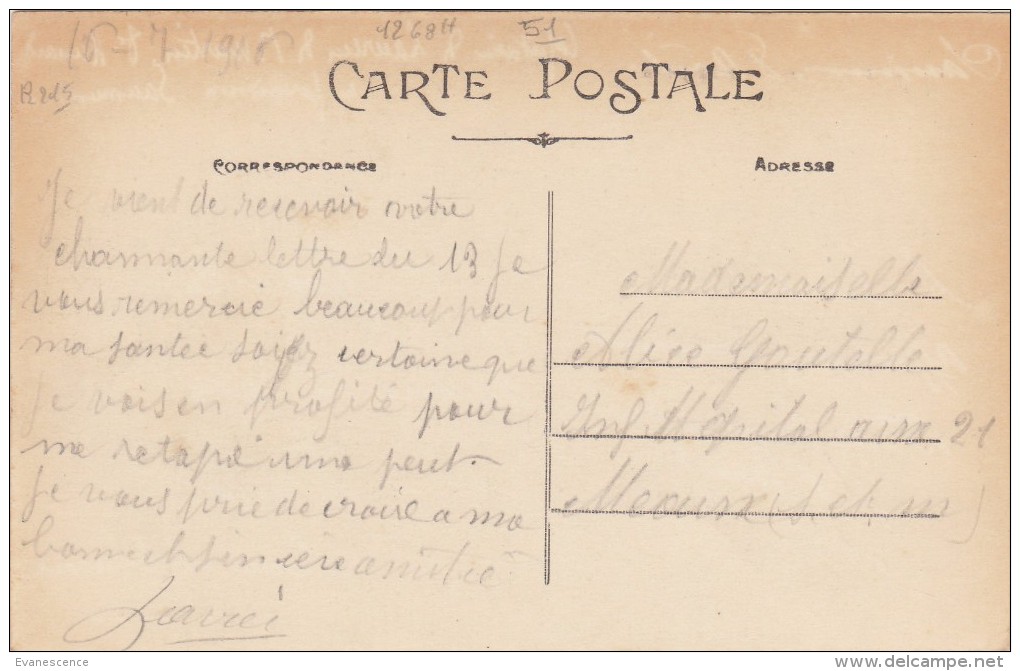 16-7 1916
1268H
51
R215
CARTE POSTALE
CORRESPONDANCE
ADRESSE
Je vient de recevoir votre
charmante lettre du 13 Je
vous remercie beaucoup pour
ma santee soiez certaine que
Je vois en profité pour
me retapé une peut.
Je vous prie de croire a ma
bonne et sincère amitié
Mademoiselle
Alice
Inf Hopital aux 21
Meaux (S. et. m)
Evanescence
www.delcampe.net